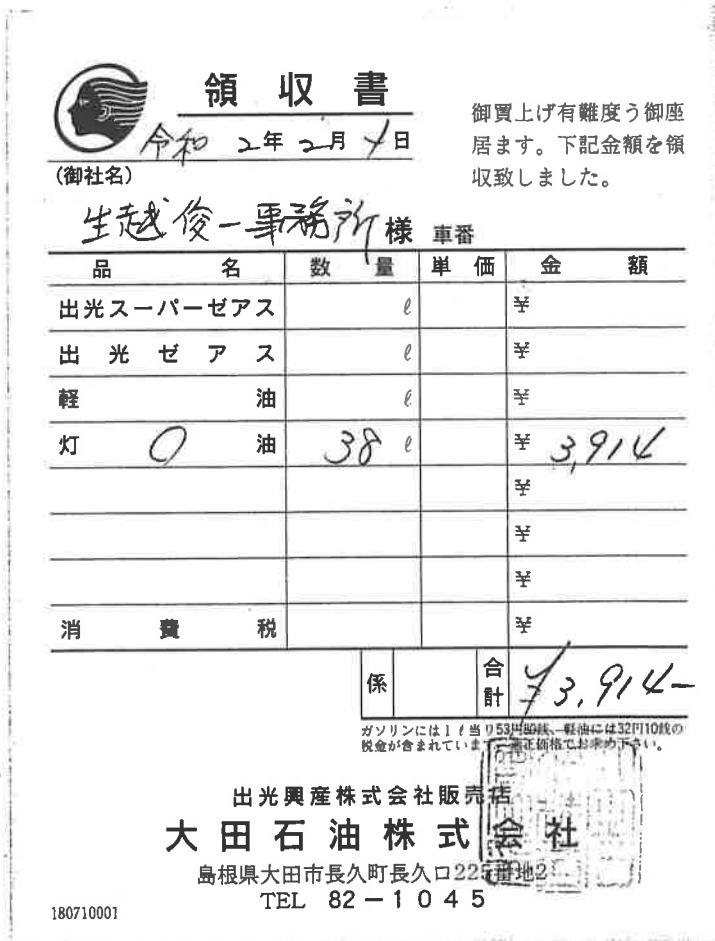 領収書
御買上げ有難度う御座
居ます。下記金額を領
収致しました。
令和 2年 2月 日
(御社名)
生越俊一事務所 様 車番
品名 数量 単価 金額
出光スーパーゼアス ℓ ¥
出光ゼアス ℓ ¥
軽油 ℓ ¥
灯油 38 ℓ ¥ 3,914
¥
¥
¥
消費税 ¥
係 合計 ¥3,914-
ガソリンには1ℓ当り53円80銭、軽油には32円10銭の
税金が含まれています。適正価格でお求め下さい。
出光興産株式会社販売店
大田石油株式会社
島根県大田市長久町長久口225番地2
TEL 82-1045
180710001